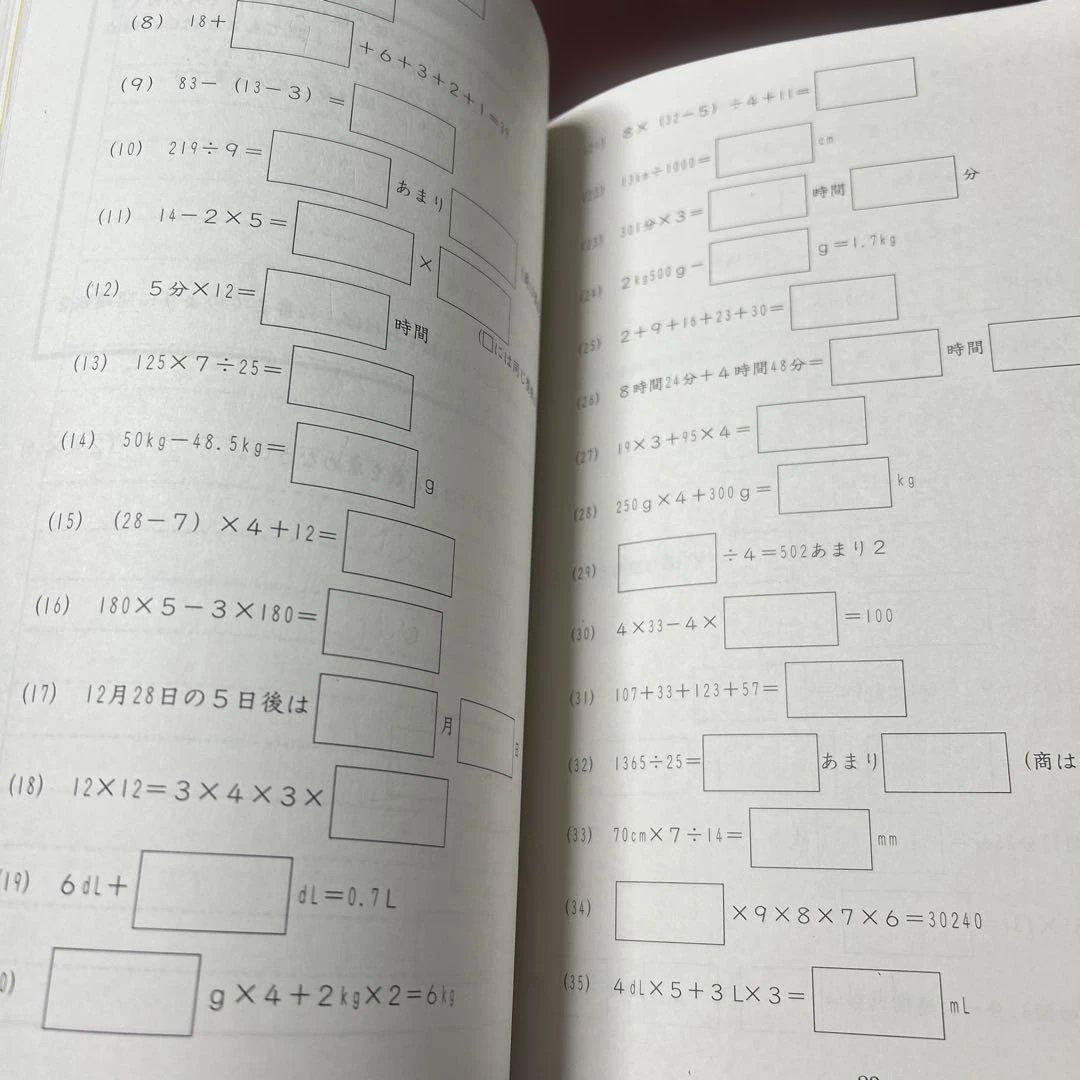 (8) 18+□+6+3+2+1=39
(9) 83-(13-3)=□
(10) 219÷9=□あまり□
(11) 14-2×5=□×□
(□には同じ
(12) 5分×12=□時間
(13) 125×7÷25=□
(14) 50kg-48.5kg=□g
(15) (28-7)×4+12=□
(16) 180×5-3×180=□
(17) 12月28日の5日後は□月□日
(18) 12×12=3×4×3×□
(19) 6dL+□dL=0.7L
0) □g×4+2kg×2=6kg
8×(32-5)÷4+11=□
÷1000=□cm
(23) 301分×3=□時間□分
(24) 2kg500g-□g=1.7kg
(25) 2+9+16+23+30=□
(26) 8時間24分+4時間48分=□時間□
(27) 19×3+95×4=□
(28) 250g×4+300g=□kg
(29) □÷4=502あまり2
(30) 4×33-4×□=100
(31) 107+33+123+57=□
(32) 1365÷25=□あまり□(商は
(33) 70cm×7÷14=□mm
(34) □×9×8×7×6=30240
(35) 4dL×5+3L×3=□mL